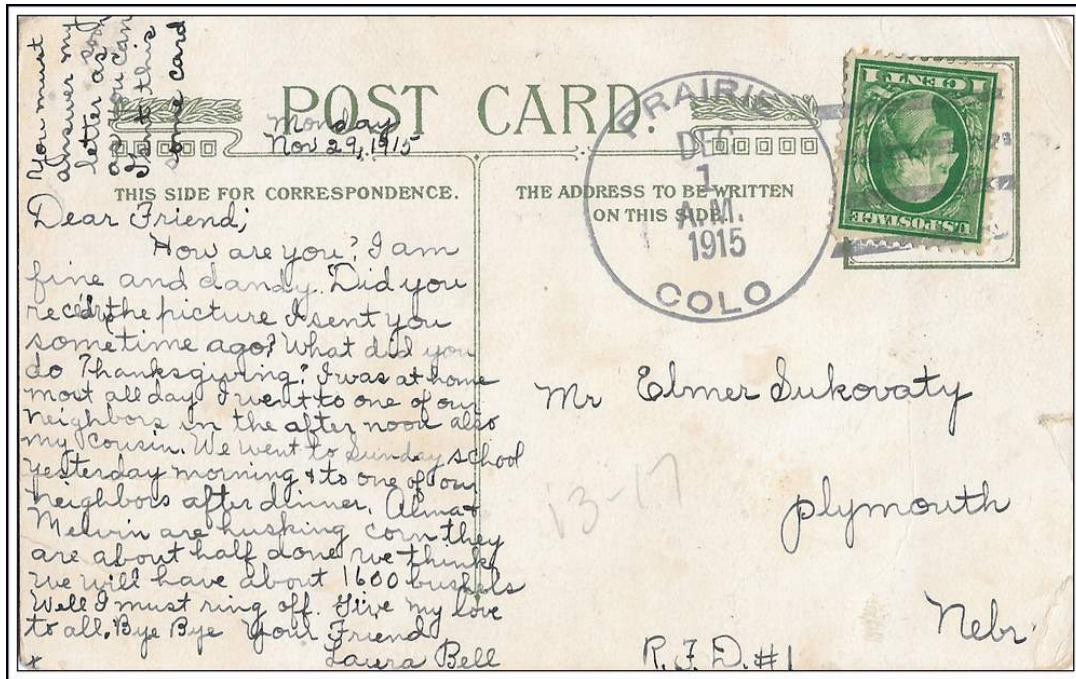 You must
answer my
letter as soon
as you can
Isn't this
some card
POST CARD.
Monday
Nov 29, 1915
THIS SIDE FOR CORRESPONDENCE.
THE ADDRESS TO BE WRITTEN
ON THIS SIDE.
PRAIRIE
DEC
1
A.M.
1915
COLO
1 CENT 1
U.S. POSTAGE
Dear Friend;
How are you? I am
fine and dandy. Did you
the picture I sent you
sometime ago? What did you
do Thanksgiving? I was at home
most all day I went to one of our
neighbors in the after noon also
my cousin. We went to Sunday school
yesterday morning & to one of our
neighbors after dinner. Alma +
Melvin are husking corn they
are about half done we think
we will have about 1600 bushels
Well I must ring off. Give my love
to all. Bye Bye Your Friend
Laura Bell
x
Mr Elmer Sukovaty
plymouth
Nebr
R.F.D. #1
13-17